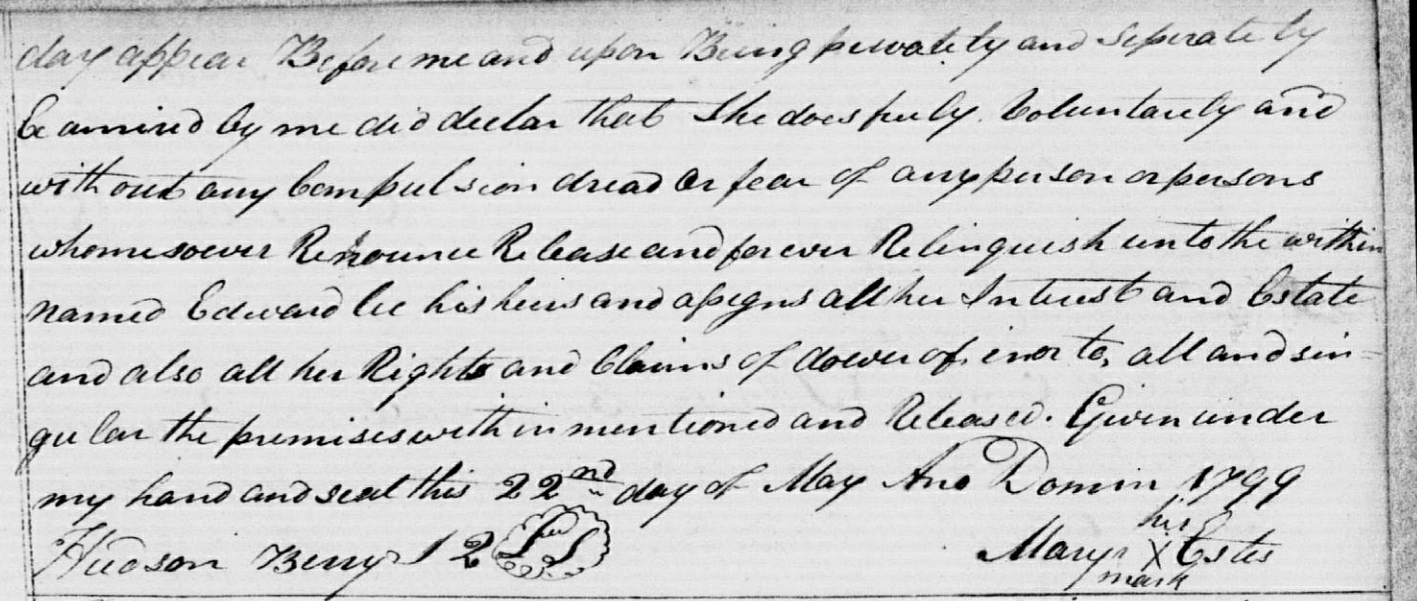 day appear Before me and upon Being privately and Seperately
Examined by me did declar that She does freely Voluntarely and
without any Compulsion dread Or fear of any person or persons
whomesoever Renounce Release and forever Relinquish unto the within
named Edward lee his heirs and assigns all her Interest and Estate
and also all her Rights and Claims of dower of, in or to, all and sin=
gular the premises within mentioned and Released. Given under
my hand and seal this 22nd day of May Ano Domin 1799
Hudson Berry
his
Mary X Estes
mark